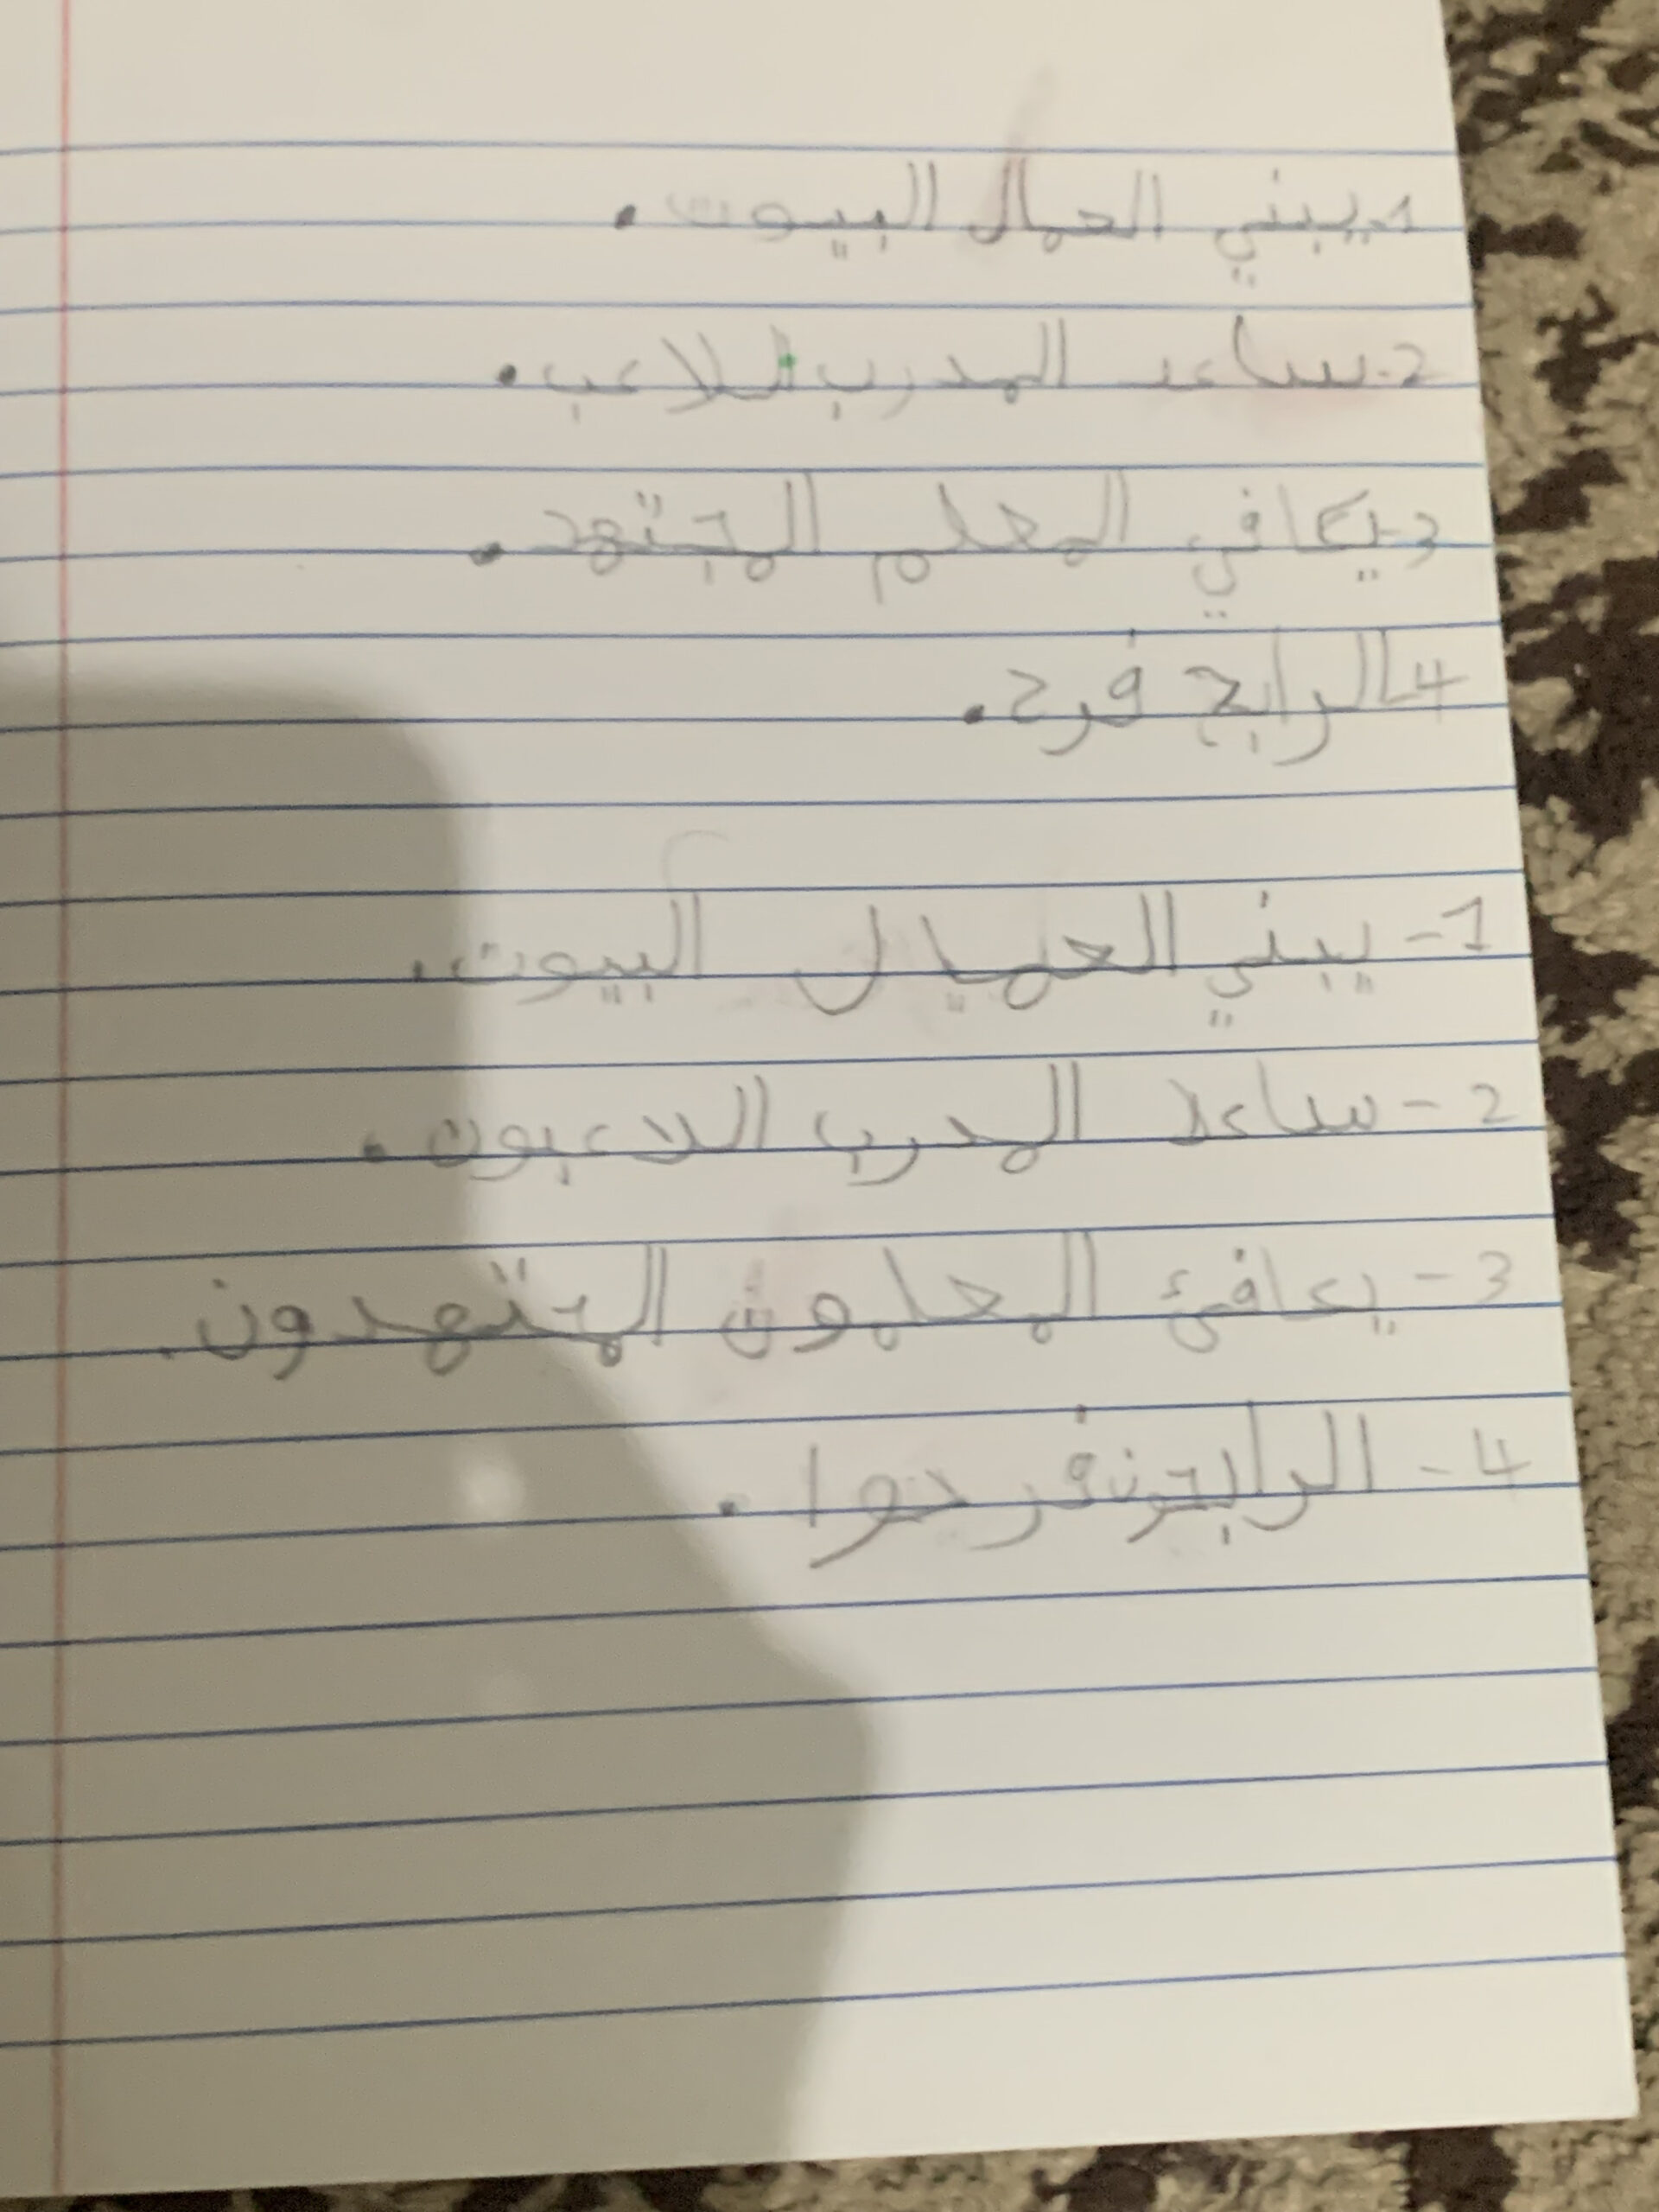 1-يبني العمال البيوت.
2-ساعد المدرب اللاعب.
3-يكافي المعلم المجتهد.
4-الرابح فرح.
1- يبني العميال البيوت.
2- ساعد المدرب اللاعبون.
3- يكافئ المعلمون المجتهدون.
4- الرابحون فرحوا.